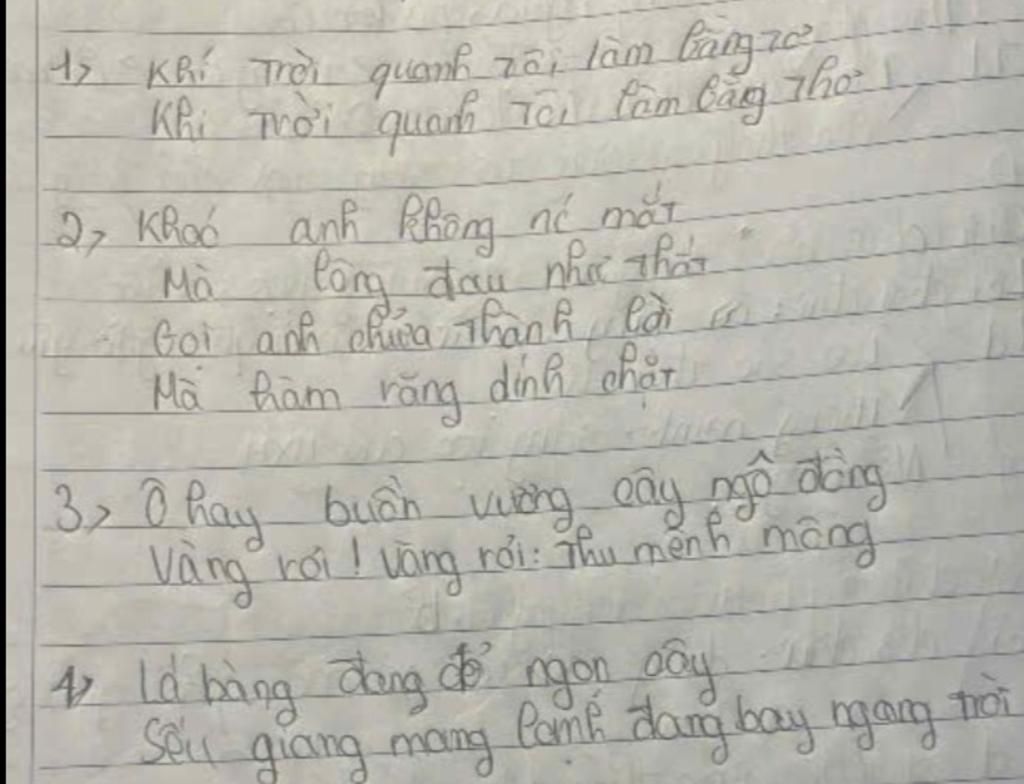 1, Khí trời quanh tôi làm bằng tơ
Khí trời quanh tôi làm bằng thơ
2, Khoé anh không ní mắt
Mà lòng đau như thắt
Gọi anh chửa thành lời
Mà hàm răng dính chặt
3, Ô hay buồn vương cây ngô đồng
Vàng rơi! Vàng rơi: Thu mênh mông
4, Lá bàng đang đỏ ngọn cây
Sếu giang mang lạnh đang bay ngang trời